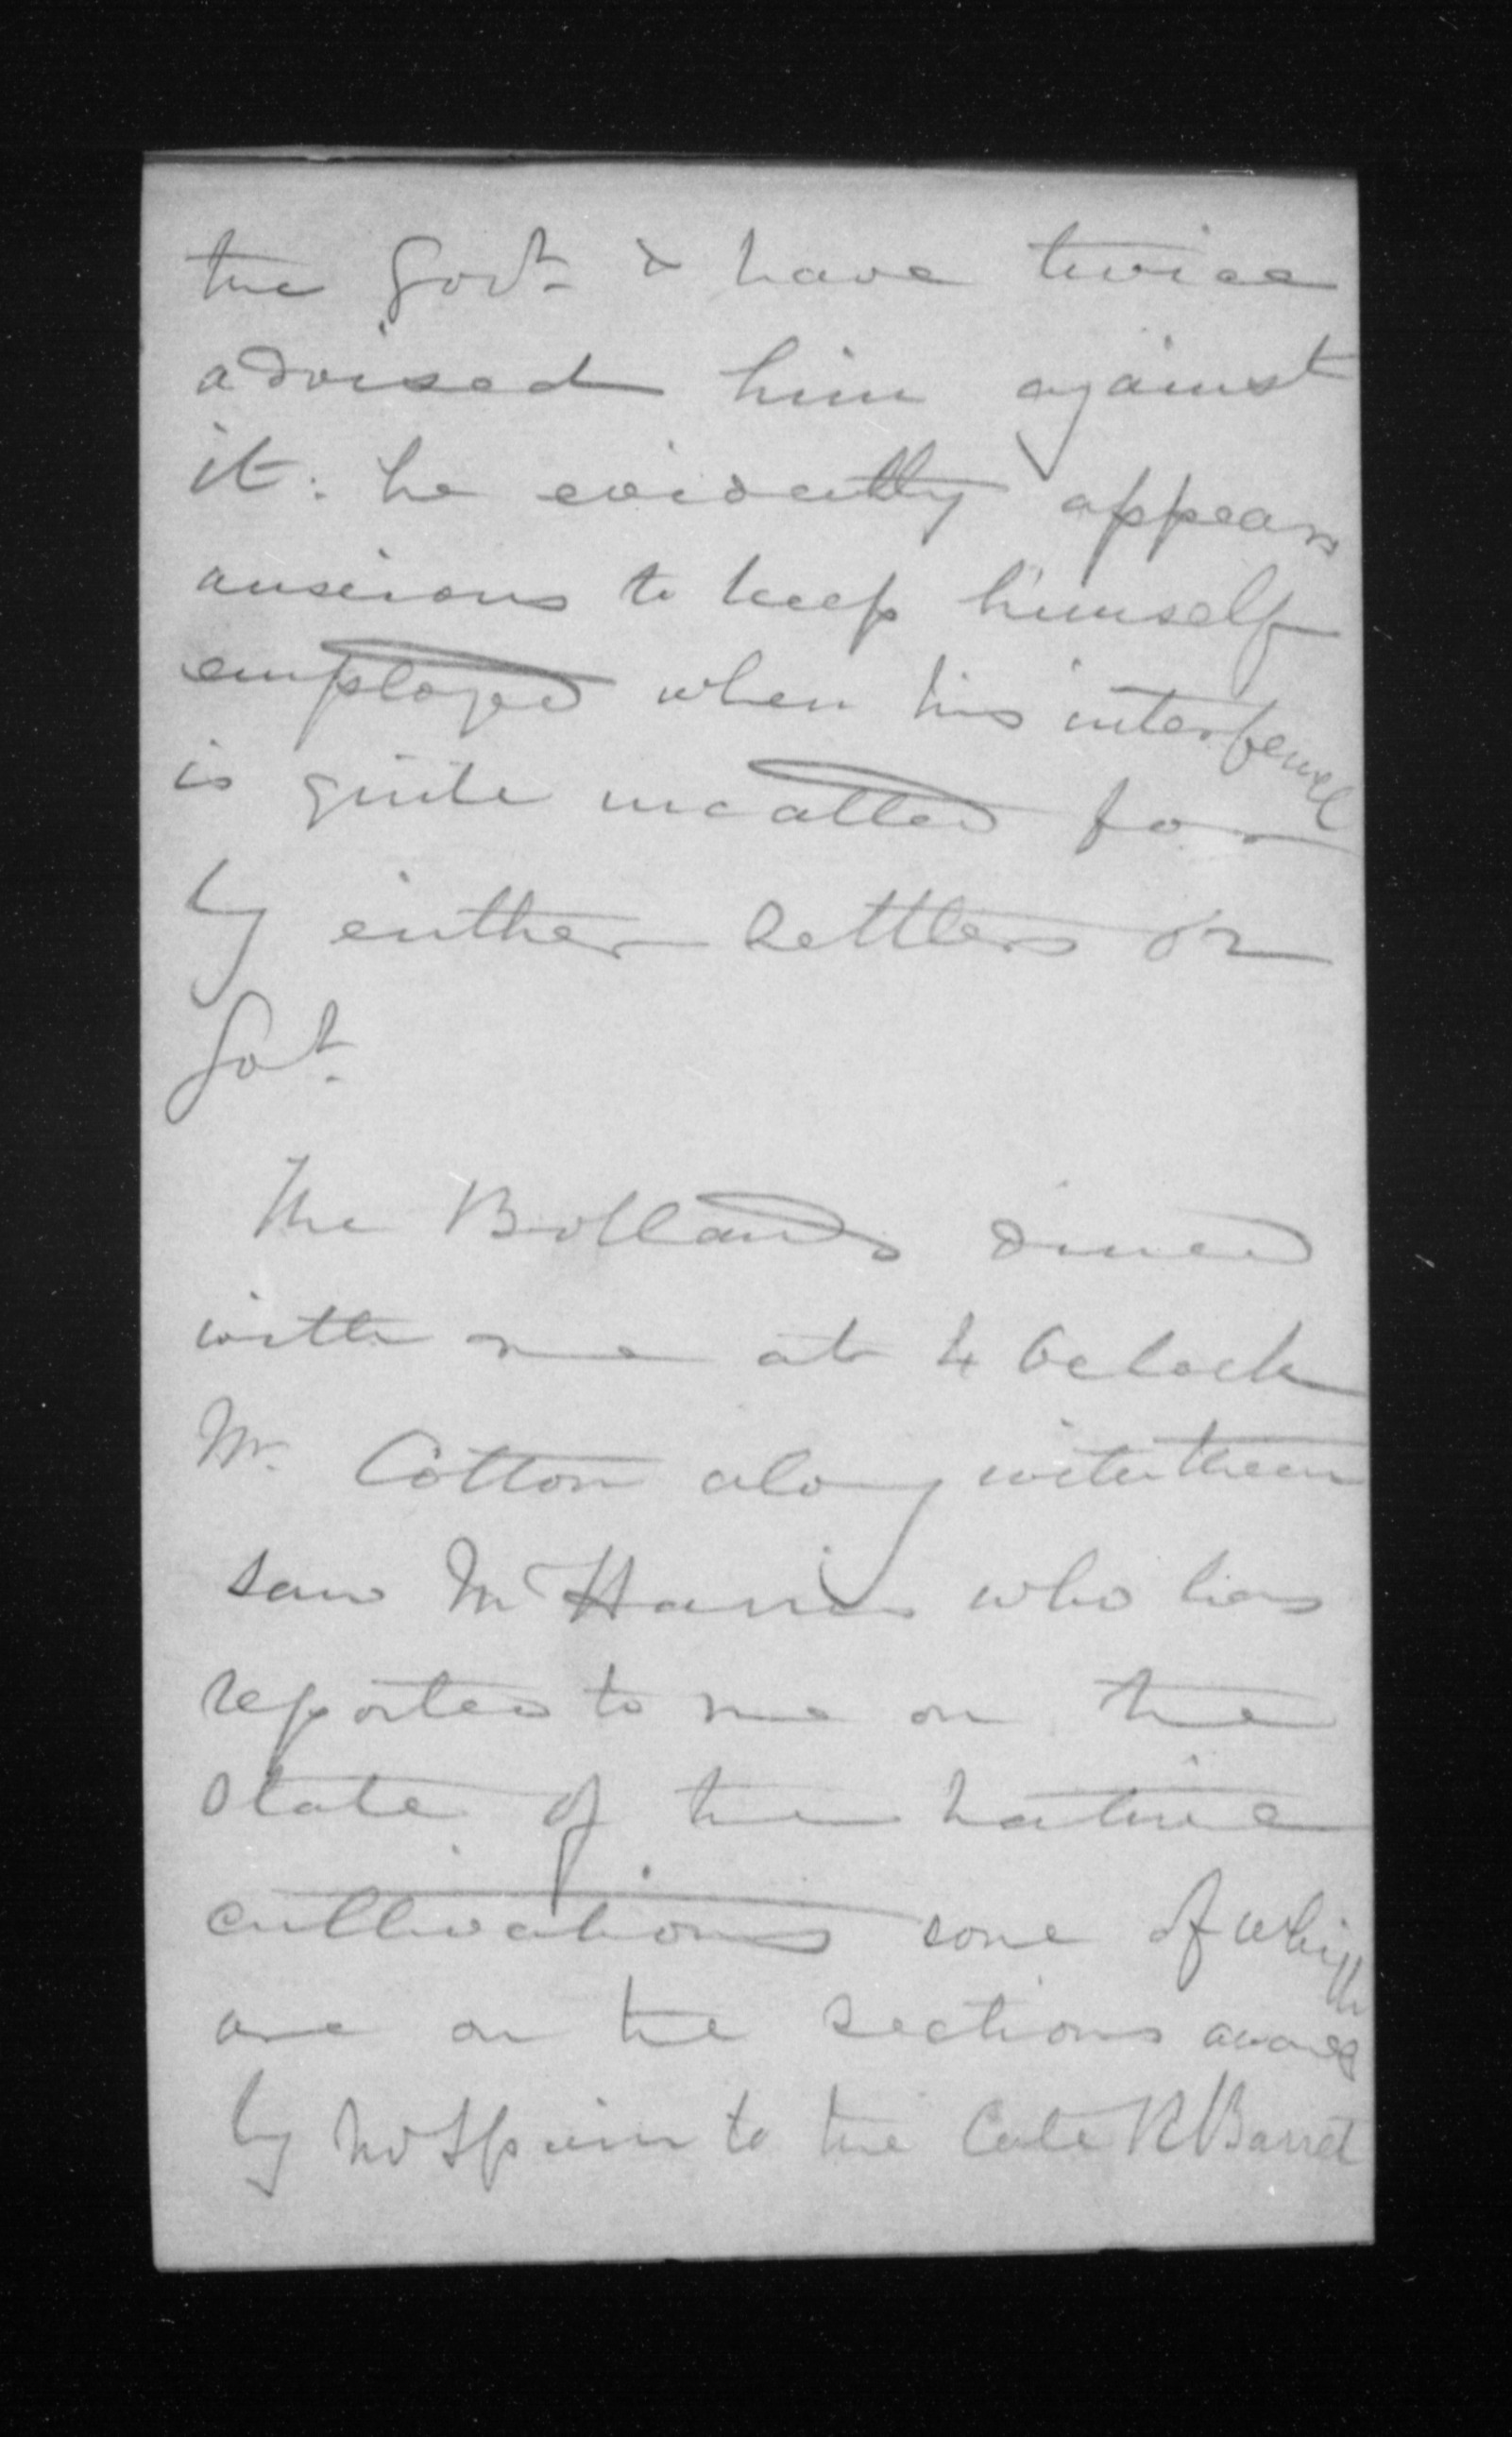 the Govt. & have twice
advised him against
it: he evidently appears
anxious to keep himself
employed when his interference
is quite uncalled for
by either settlers or
Got.
The Bollands dined
with me at 4 Oclock
Mr. Cotton along with them
saw Mr Harris who has
reported to me on the
state of the native
cultivations some of which
are on the sections
by Mr Spain to the late R Barret